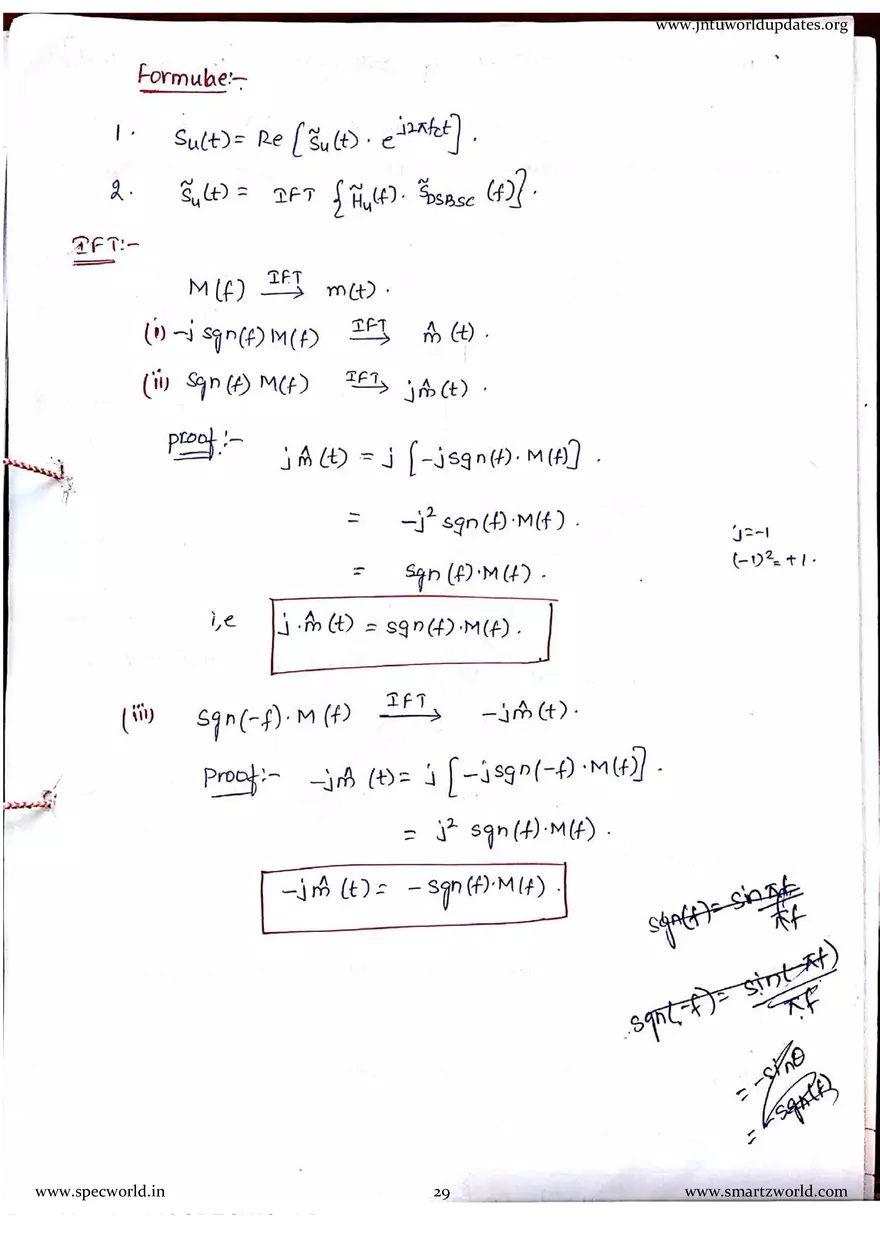 www.jntuworldupdates.org
Formulae:-
1. Su(t) = Re [S̃u(t) . e^j2πfct] .
2. S̃u(t) = IFT { H̃u(f) . S̃DSBSC (f)} .
IFT:-
M(f) IFT→ m(t) .
(i) -j sgn(f) M(f) IFT→ m̂(t) .
(ii) sgn(f) M(f) IFT→ jm̂(t) .
proof:- jm̂(t) = j [-jsgn(f) . M(f)] .
= -j² sgn(f) . M(f) .
j=-1
(-1)² = +1 .
= sgn(f) . M(f) .
i,e j . m̂(t) = sgn(f) . M(f) .
(iii) sgn(-f) . M(f) IFT→ -jm̂(t) .
Proof:- -jm̂(t) = j [-jsgn(-f) . M(f)] .
= j² sgn(f) . M(f) .
-jm̂(t) = - sgn(f) . M(f) .
sgn(f) = sin πf / πf
sgn(-f) = sin(-πf) / πf
= -sinθ
= sgn(f)
www.specworld.in 29 www.smartzworld.com